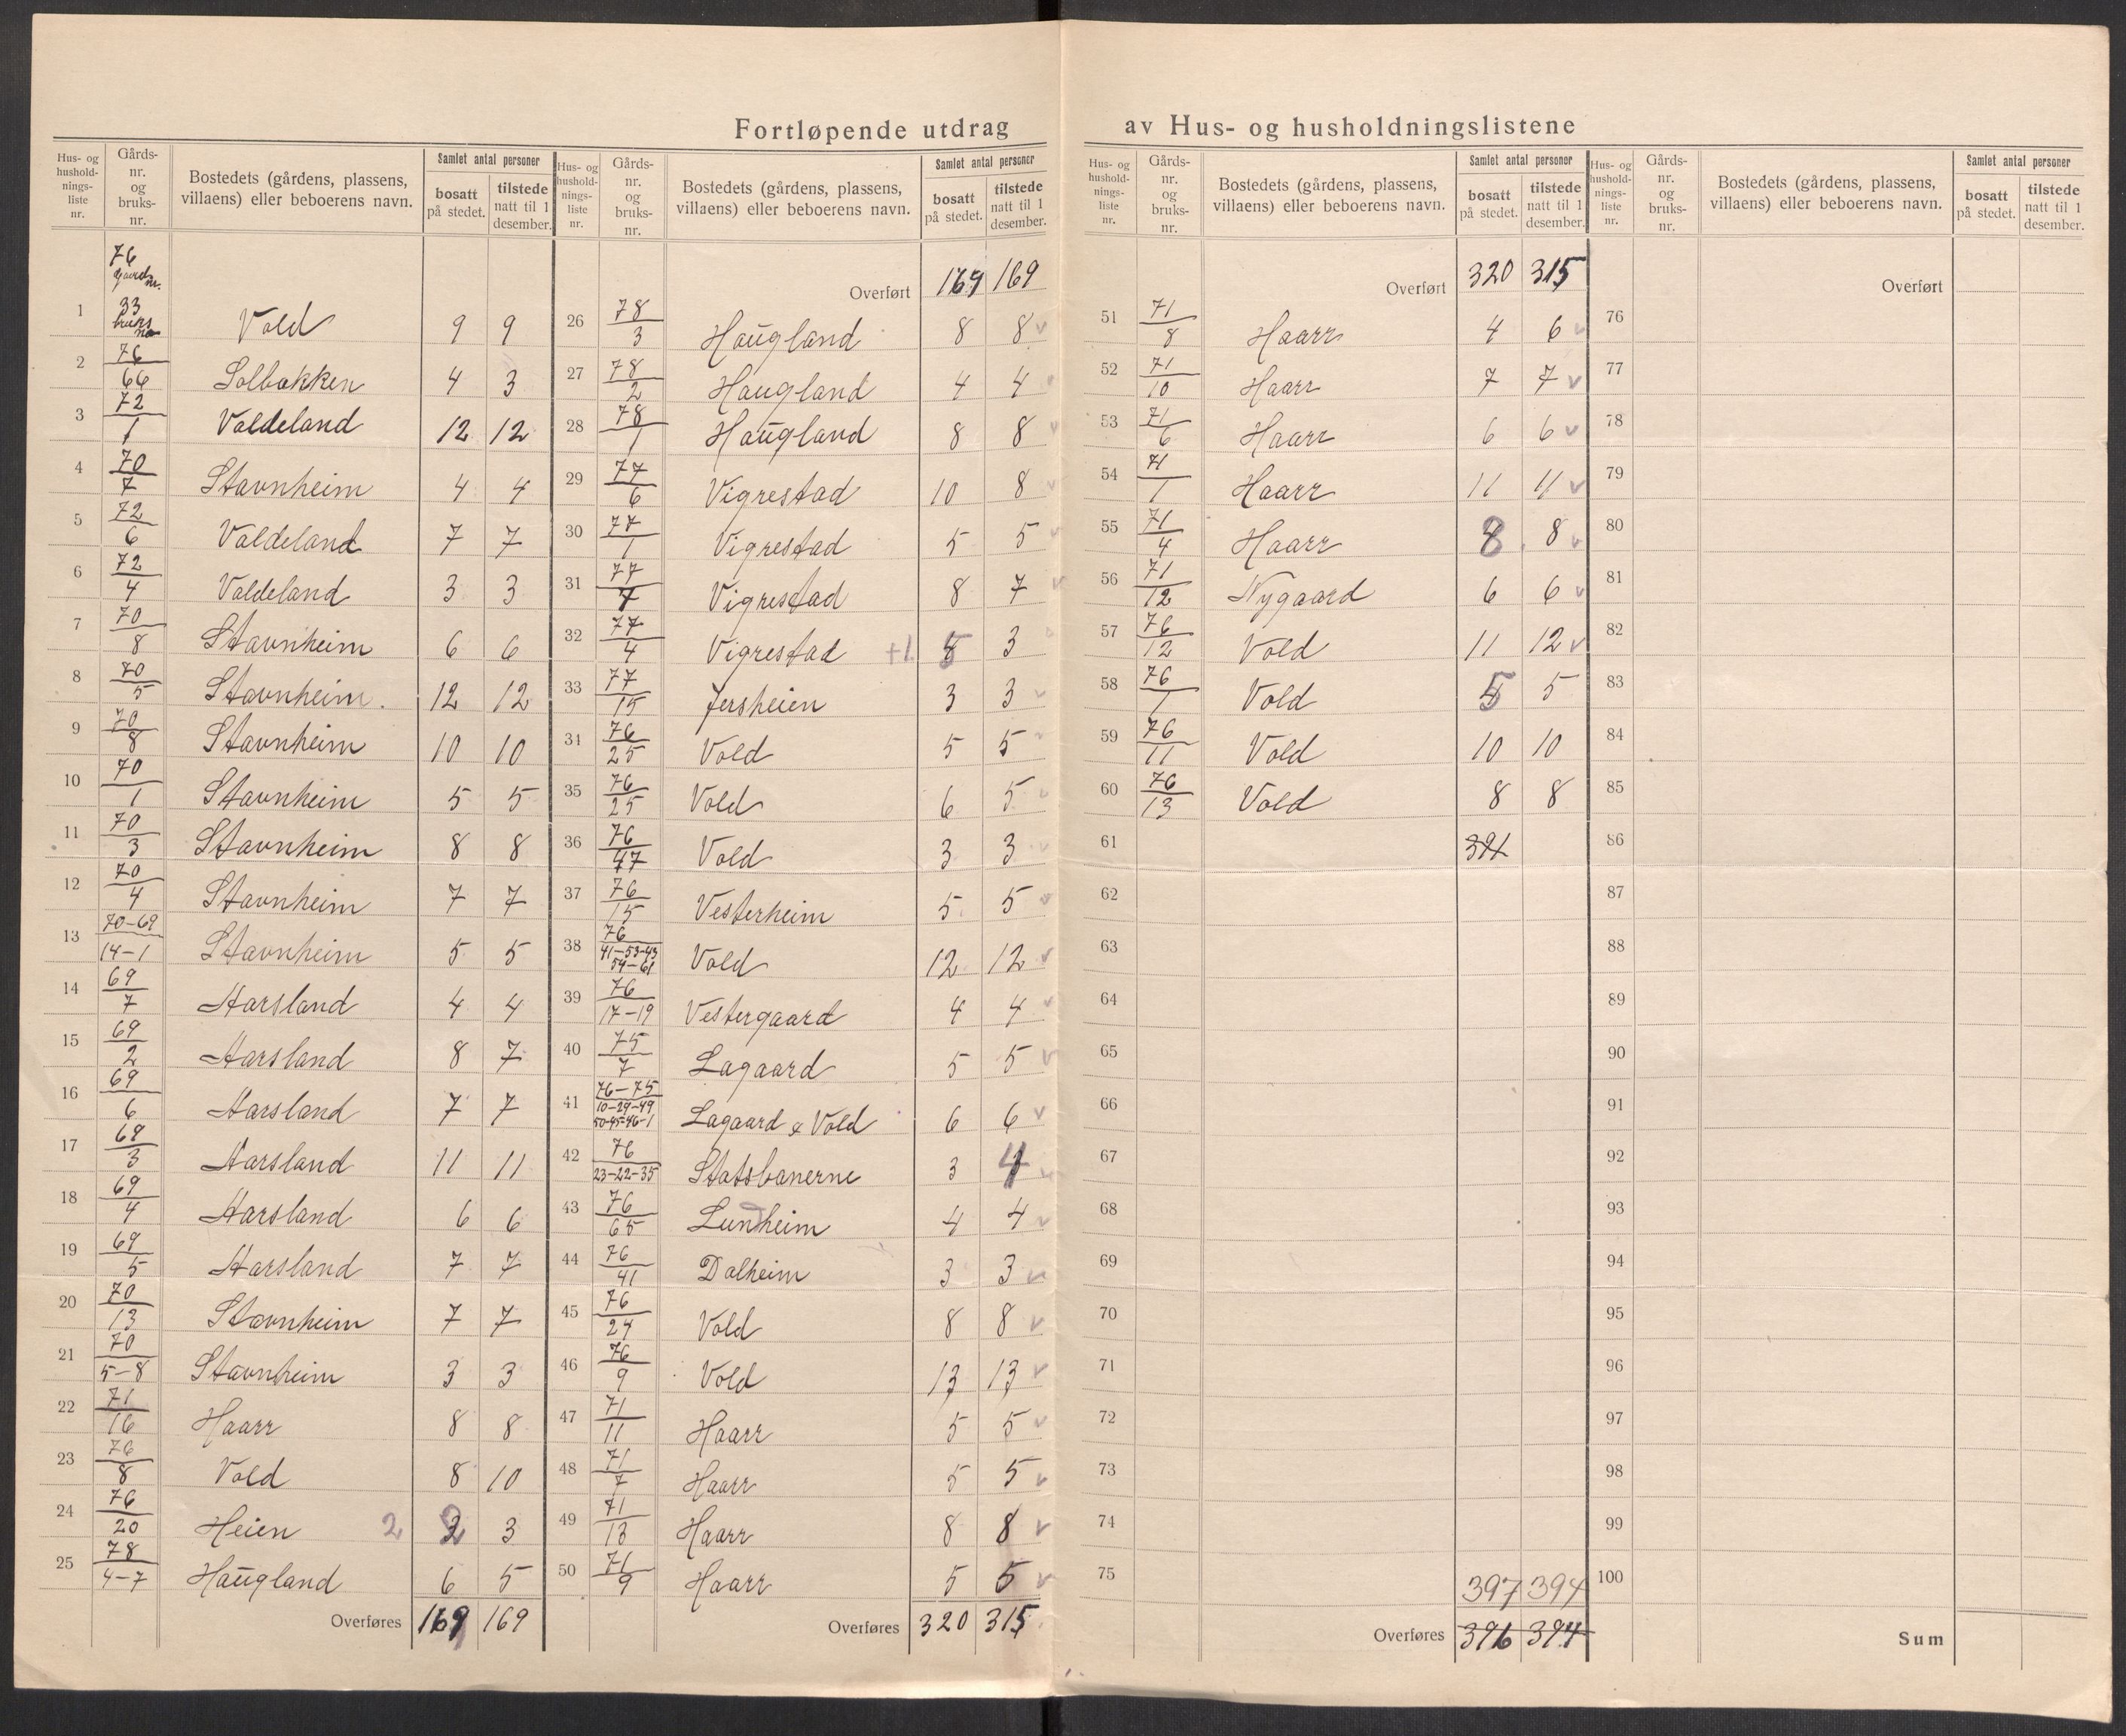 Fortløpende utdrag av Hus- og husholdningslistene
Hus- og husholdnings-liste nr. | Gårds-nr. og bruks-nr. | Bostedets (gårdens, plassens, villaens) eller beboerens navn. | Samlet antal personer bosatt på stedet. | tilstede natt til 1 desember.
76 gaardnr.
1 33 bruks no Vold 9 9
2 76/66 Solbakken 4 3
3 72/1 Valdeland 12 12
4 70/7 Stavnheim 4 4
5 72/6 Valdeland 7 7
6 72/4 Valdeland 3 3
7 70/8 Stavnheim 6 6
8 70/5 Stavnheim. 12 12
9 70/8 Stavnheim 10 10
10 70/1 Stavnheim 5 5
11 70/3 Stavnheim 8 8
12 70/4 Stavnheim 7 7
13 70-69/14-1 Stavnheim 5 5
14 69/7 Aarsland 4 4
15 69/2 Aarsland 8 7
16 69/6 Aarsland 7 7
17 69/3 Aarsland 11 11
18 69/4 Aarsland 6 6
19 69/5 Aarsland 7 7
20 70/13 Stavnheim 7 7
21 70/5-8 Stavnheim 3 3
22 71/16 Haarr 8 8
23 76/8 Vold 8 10
24 76/20 Heien 2 2 3
25 78/4-7 Haugland 6 5
Overføres 169 169
Hus- og husholdnings-liste nr. | Gårds-nr. og bruks-nr. | Bostedets (gårdens, plassens, villaens) eller beboerens navn. | Samlet antal personer bosatt på stedet. | tilstede natt til 1 desember.
Overført 169 169
26 78/3 Haugland 8 8
27 78/2 Haugland 4 4
28 78/1 Haugland 8 8
29 77/6 Vigrestad 10 8
30 77/1 Vigrestad 5 5
31 77/7 Vigrestad 8 7
32 77/4 Vigrestad +1 5 3
33 77/15 Jersheien 3 3
34 76/25 Vold 5 5
35 76/25 Vold 6 5
36 76/47 Vold 3 3
37 76/15 Vesterheim 5 5
38 76/41-53-43 54-61 Vold 12 12
39 76/17-19 Vestergaard 4 4
40 75/7 Lagaard 5 5
41 76-75/10-29-49 50-45-46-1 Lagaard & Vold 6 6
42 76/23-22-35 Statsbanerne 3 4
43 76/65 Lunheim 4 4
44 76/41 Dalheim 3 3
45 76/24 Vold 8 8
46 76/9 Vold 13 13
47 71/11 Haarr 5 5
48 71/7 Haarr 5 5
49 71/13 Haarr 8 8
50 71/9 Haarr 5 5
Overføres 320 315
Hus- og husholdnings-liste nr. | Gårds-nr. og bruks-nr. | Bostedets (gårdens, plassens, villaens) eller beboerens navn. | Samlet antal personer bosatt på stedet. | tilstede natt til 1 desember.
Overført 320 315
51 71/8 Haarr 4 6
52 71/10 Haarr 7 7
53 71/6 Haarr 6 6
54 71/1 Haarr 11 11
55 71/4 Haarr 8 8
56 71/12 Nygaard 6 6
57 76/12 Vold 11 12
58 76/1 Vold 5 5
59 76/11 Vold 10 10
60 76/13 Vold 8 8
61
62
63
64
65
66
67
68
69
70
71
72
73
74
75 397 394
Overføres 396 394
Hus- og husholdnings-liste nr. | Gårds-nr. og bruks-nr. | Bostedets (gårdens, plassens, villaens) eller beboerens navn. | Samlet antal personer bosatt på stedet. | tilstede natt til 1 desember.
Overført
76
77
78
79
80
81
82
83
84
85
86
87
88
89
90
91
92
93
94
95
96
97
98
99
100
Sum